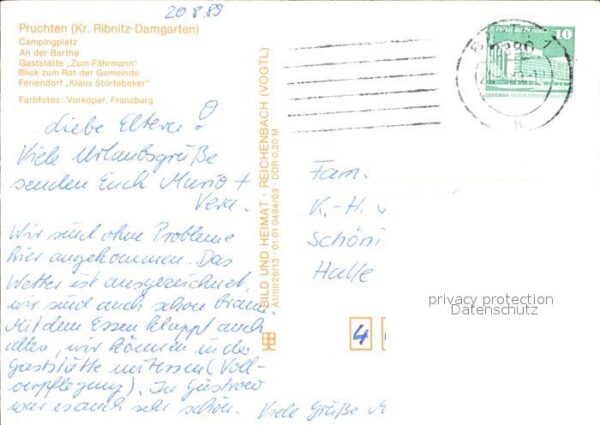 20.8.89
Pruchten (Kr. Ribnitz-Damgarten)
Campingplatz
An der Barthe
Gaststätte „Zum Fährmann"
Blick zum Rat der Gemeinde
Feriendorf „Klaus Störtebeker"
Farbfotos: Vorkoper, Franzburg
Liebe Eltern!
Viele Urlaubsgrüße
senden Euch Mario +
Vera.
Wir sind ohne Probleme
hier angekommen. Das
Wetter ist ausgezeichnet,
wir sind auch schon braun.
Mit dem Essen klappt auch
alles, wir können in der
Gaststätte mitessen (Voll-
verpflegung). In Güstrow
war es auch sehr schön. Viele Grüße M
BILD UND HEIMAT · REICHENBACH (VOGTL)
A1/III/26/13 · 01 01 0494/03 DDR 0,20 M
10
Fam.
K.-H.
Schöni
Halle
4
privacy protection
Datenschutz